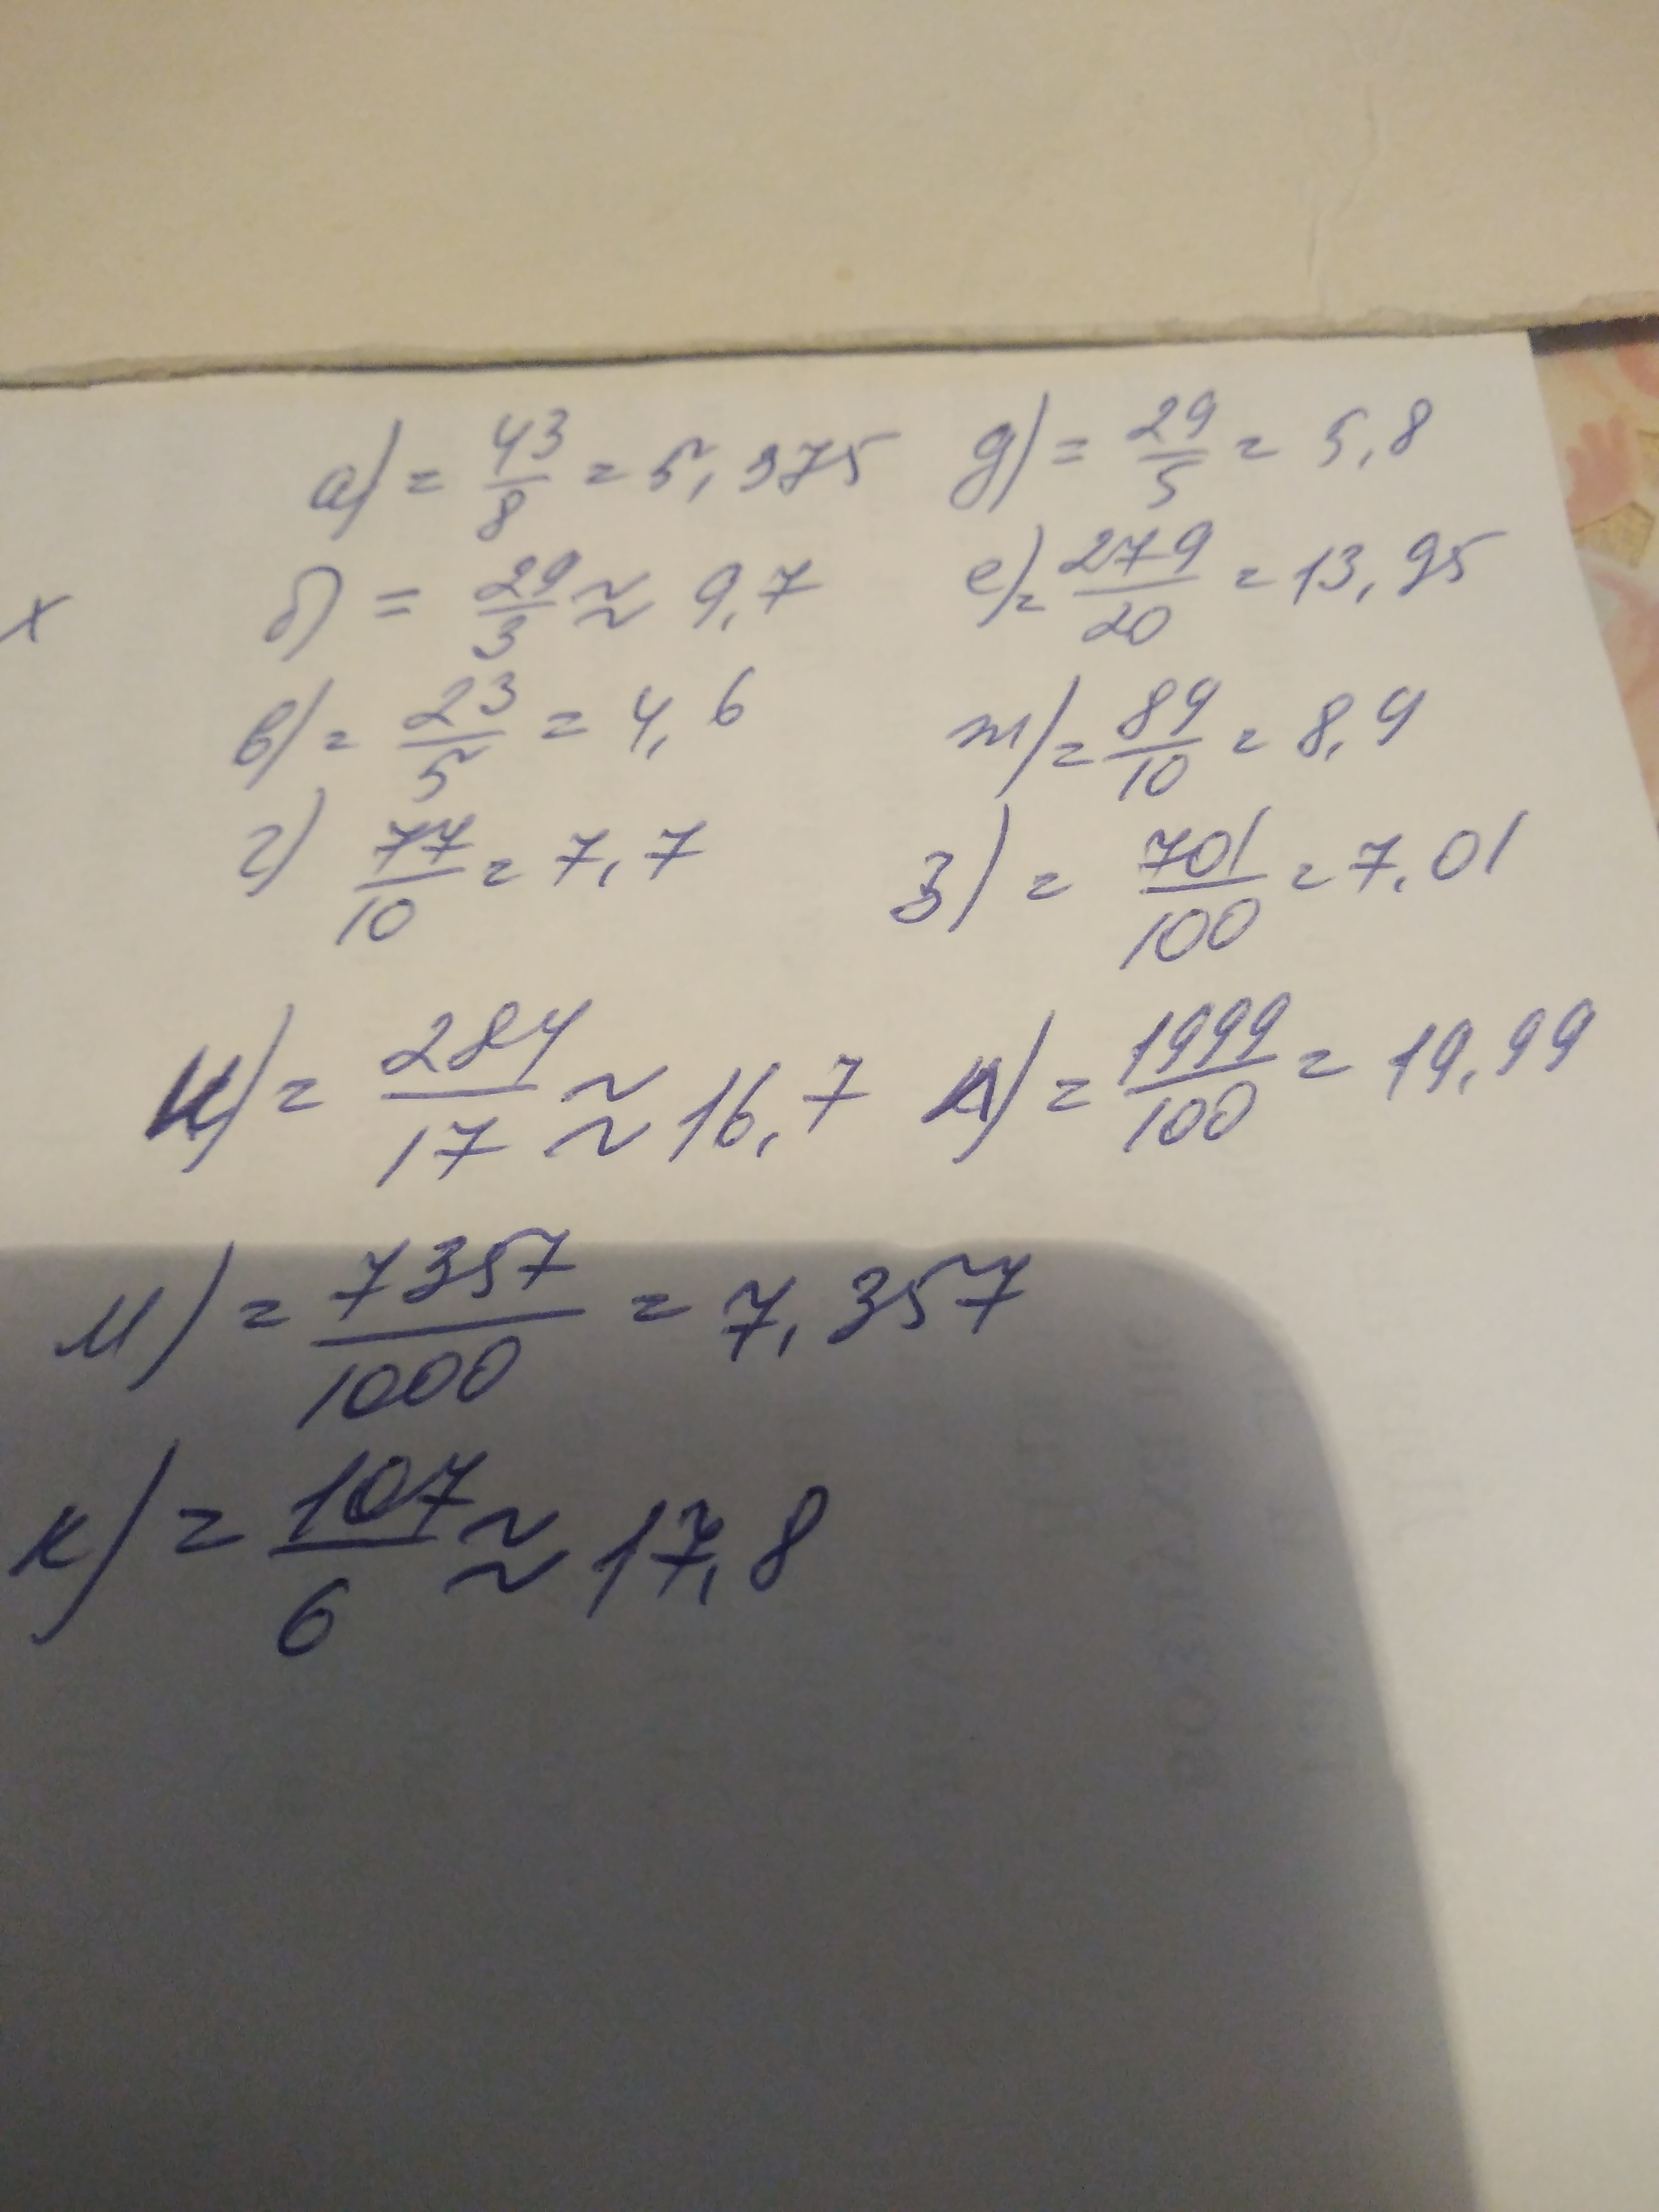 а) = 43/8 = 5,375 д) = 29/5 = 5,8
х б) = 29/3 ≈ 9,7 е) = 279/20 = 13,95
в) = 23/5 = 4,6 ж) = 89/10 = 8,9
г) 77/10 = 7,7 з) = 701/100 = 7,01
и) = 284/17 ≈ 16,7 л) = 1999/100 = 19,99
м) = 7357/1000 = 7,357
к) = 107/6 ≈ 17,8